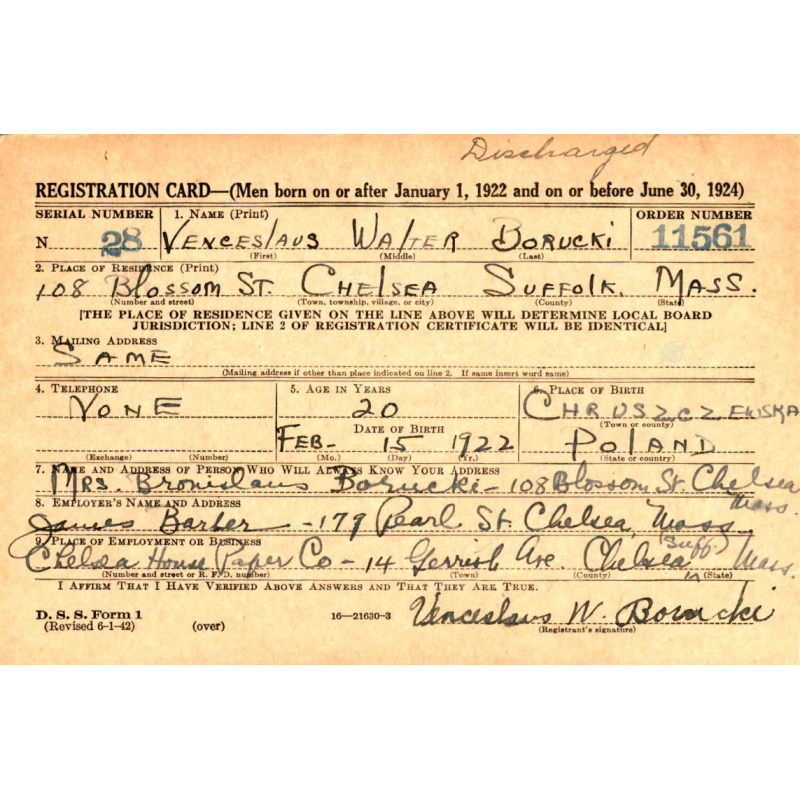 Discharged
REGISTRATION CARD—(Men born on or after January 1, 1922 and on or before June 30, 1924)
SERIAL NUMBER 1. NAME (Print) ORDER NUMBER
N 28 VENCESlAUS WAlTER BORUCKI 11561
(First) (Middle) (Last)
2. PLACE OF RESIDENCE (Print)
108 Blossom ST. CHELSEA SUFFOlK. MASS.
(Number and street) (Town, township, village, or city) (County) (State)
[THE PLACE OF RESIDENCE GIVEN ON THE LINE ABOVE WILL DETERMINE LOCAL BOARD
JURISDICTION; LINE 2 OF REGISTRATION CERTIFICATE WILL BE IDENTICAL]
3. MAILING ADDRESS
SAME
(Mailing address if other than place indicated on line 2. If same insert word same)
4. TELEPHONE 5. AGE IN YEARS 6. PLACE OF BIRTH
NONE 20 CHRUSZCZEWSKA
(Town or county)
DATE OF BIRTH
FEB- 15 1922 POLAND
(Exchange) (Number) (Mo.) (Day) (Yr.) (State or country)
7. NAME AND ADDRESS OF PERSON WHO WILL ALWAYS KNOW YOUR ADDRESS
MRS. Bronislaus Borucki - 108 Blossom St. Chelsea
Mass.
8. EMPLOYER'S NAME AND ADDRESS
James Barber - 179 Pearl St. Chelsea, Mass
9. PLACE OF EMPLOYMENT OR BUSINESS
(Suff)
Chelsea House Paper Co - 14 Gerrish Ave. Chelsea Mass.
(Number and street or R. F. D. number) (Town) (County) (State)
I AFFIRM THAT I HAVE VERIFIED ABOVE ANSWERS AND THAT THEY ARE TRUE.
D. S. S. Form 1
(Revised 6-1-42) (over) 16—21630-3 Venceslaus W. Borucki
(Registrant's signature)